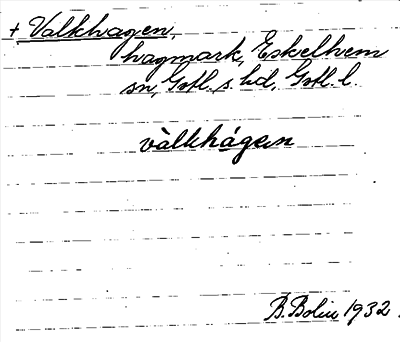 + Valkhagen,
hagmark, Eskelhem
sn, Gotl. s. hd, Gotl. l.
va̍lkhágen
B. Bolin 1932.